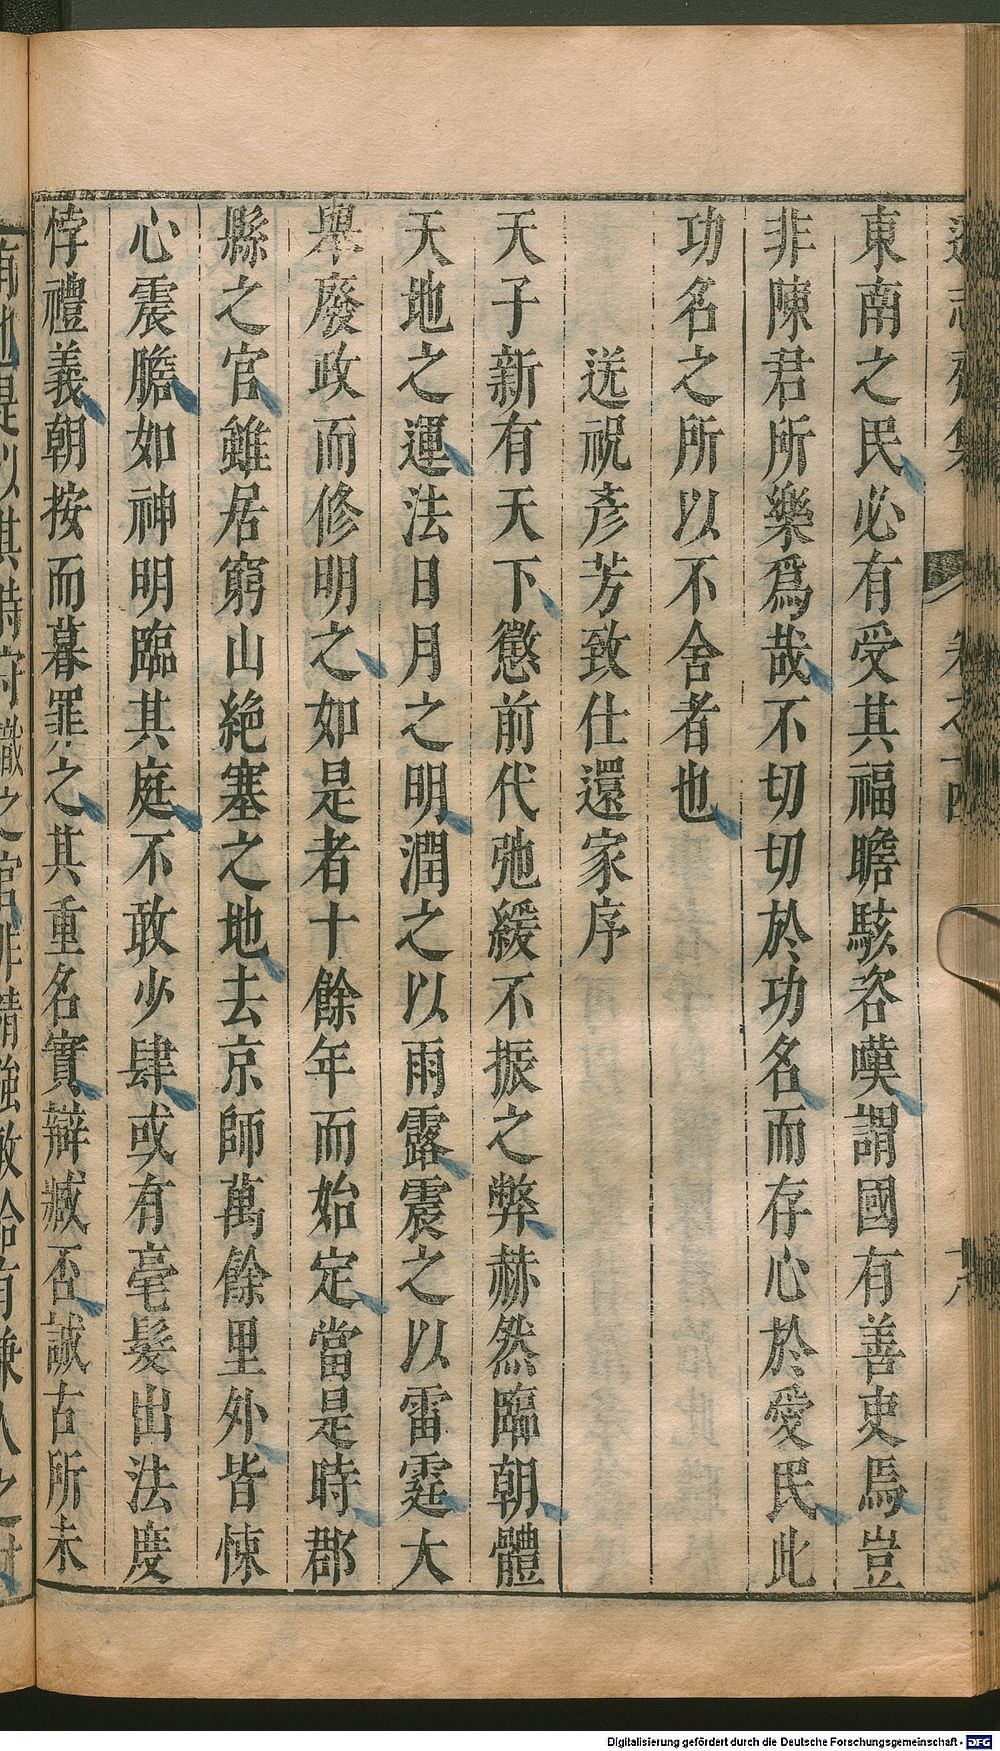 東南之民必有受其福瞻駭咨嘆謂國有善吏焉豈
非陳君所樂爲哉不切切於功名而存心於愛民此
功名之所以不舍者也
送祝彥芳致仕還家序
天子新有天下懲前代弛緩不振之弊赫然臨朝體
天地之運法日月之明潤之以雨露震之以雷霆大
舉廢政而修明之如是者十餘年而始定當是時郡
縣之官雖居窮山絶塞之地去京師萬餘里外皆悚
心震膽如神明臨其庭不敢少肆或有毫髮出法度
悖禮義朝按而暮罪之其重名實辯臧否誠古所未
Digitalisierung gefördert durch die Deutsche Forschungsgemeinschaft - DFG